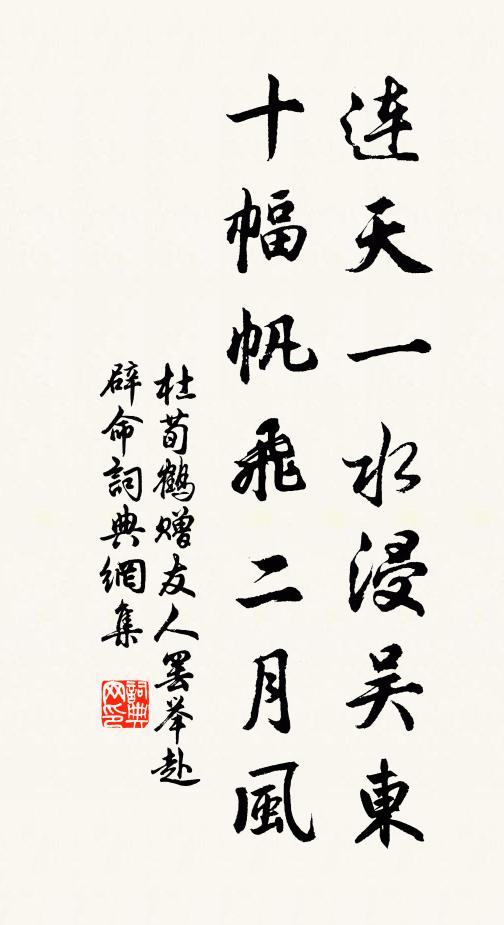 連天一水浸吴東
十幅帆飛二月風
杜荀鶴赠友人罢举赴
辟命詞典網集
詞典网印